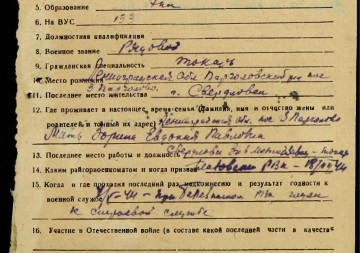 5. Образование
6. На ВУС 133
7. Должностная квалификация
8. Военное звание Рядовой
9. Гражданская специальность токарь
10. Место рождения Ленинградская обл Парголовский
3 Парголово
11. Последнее место жительства г. Свердловск
12. Где проживает в настоящее время семья (фамилия, имя и отчество жены или
родителей и точный их адрес) Ленинградская обл пос 3 Парголово
Мать Зорина Евдокия Павловна
13. Последнее место работы и должность Свердловск
14. Каким райгорвоенкоматом и когда призван РВК
15. Когда и где проходил последний раз медкомиссию и результат годности к
военной службе при РВК годен
к строевой службе
16. Участие в Отечественной войне (в составе какой последней части в качестве